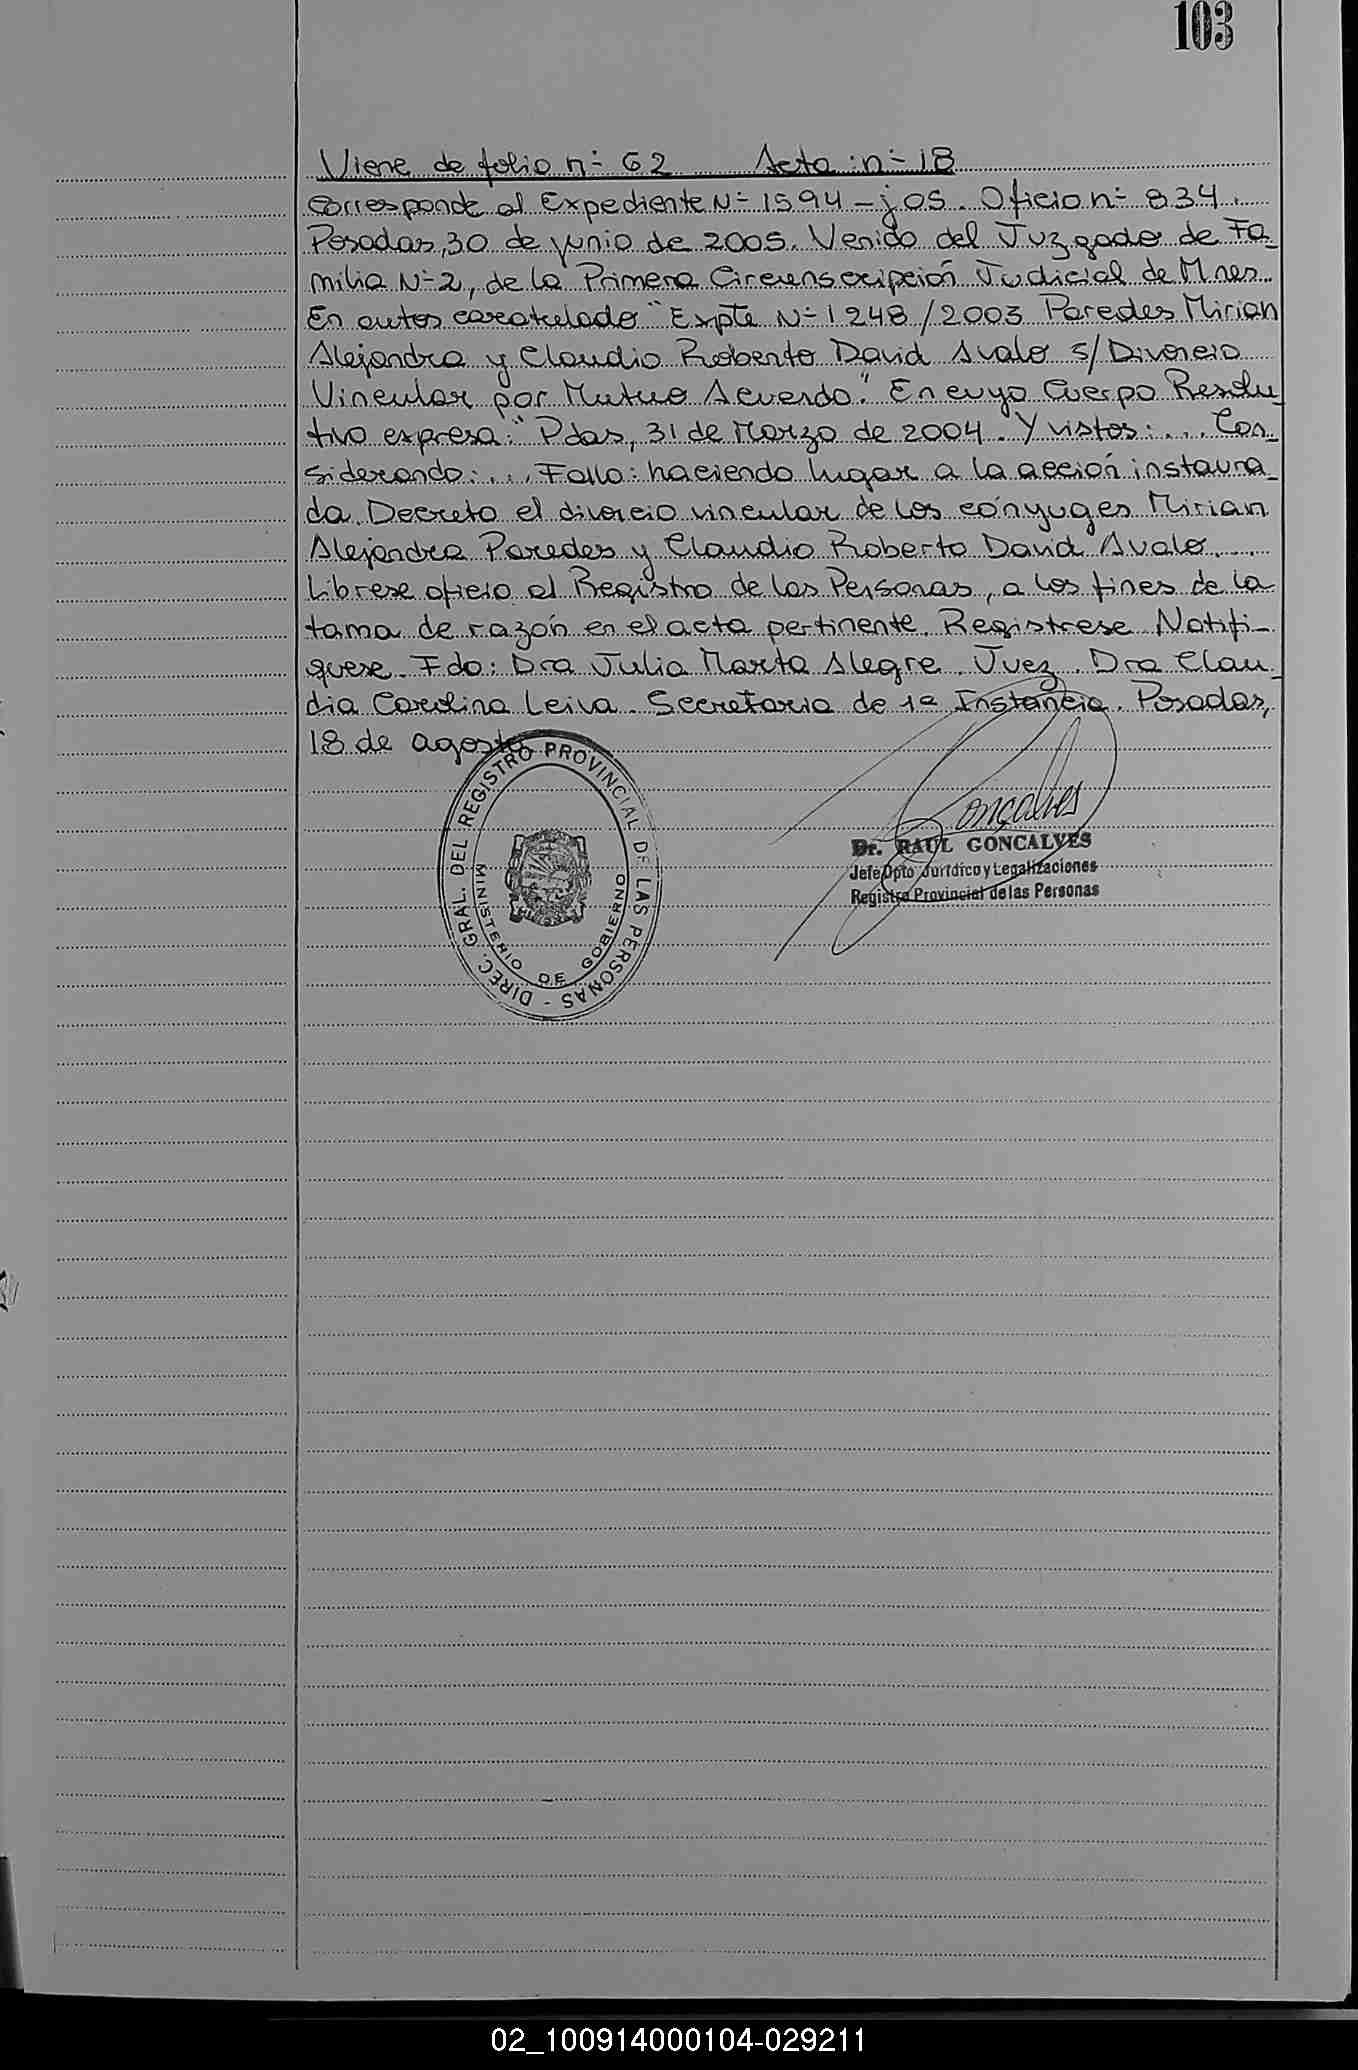 103
Viene de folio n° 62 Acta n° 18
Corresponde al Expediente N° 1594 - j 05. Oficio n° 834.
Posadas, 30 de junio de 2005. Venido del Juzgado de Fa-
milia N° 2, de la Primera Circunscripción Judicial de Mnes.
En autos caratulado "Expte N° 1248/2003 Paredes Mirian
Alejandra y Claudio Roberto David Avalo s/Divorcio
Vincular por Mutuo Acuerdo." En cuyo Cuerpo Resolu
tivo expresa: "Pdas, 31 de Marzo de 2004. Y vistos: .... Con_
siderando: .... Fallo: haciendo lugar a la acción instaura_
da. Decreto el divorcio vincular de los cónyuges Mirian
Alejandra Paredes y Claudio Roberto David Avalo.
Librese oficio al Registro de las Personas, a los fines de la
toma de razón en el acta pertinente. Registrese Notifi-
quese. Fdo: Dra Julia Marta Alegre. Juez. Dra Clau_
dia Carolina Leiva. Secretaria de 1ª Instancia. Posadas,
18 de agosto
DIREC. GRAL. DEL REGISTRO PROVINCIAL DE LAS PERSONAS -
MINISTERIO DE GOBIERNO
Goncalves
Dr. RAUL GONCALVES
Jefe Dpto Jurídico y Legalizaciones
Registro Provincial de las Personas
02_100914000104-029211